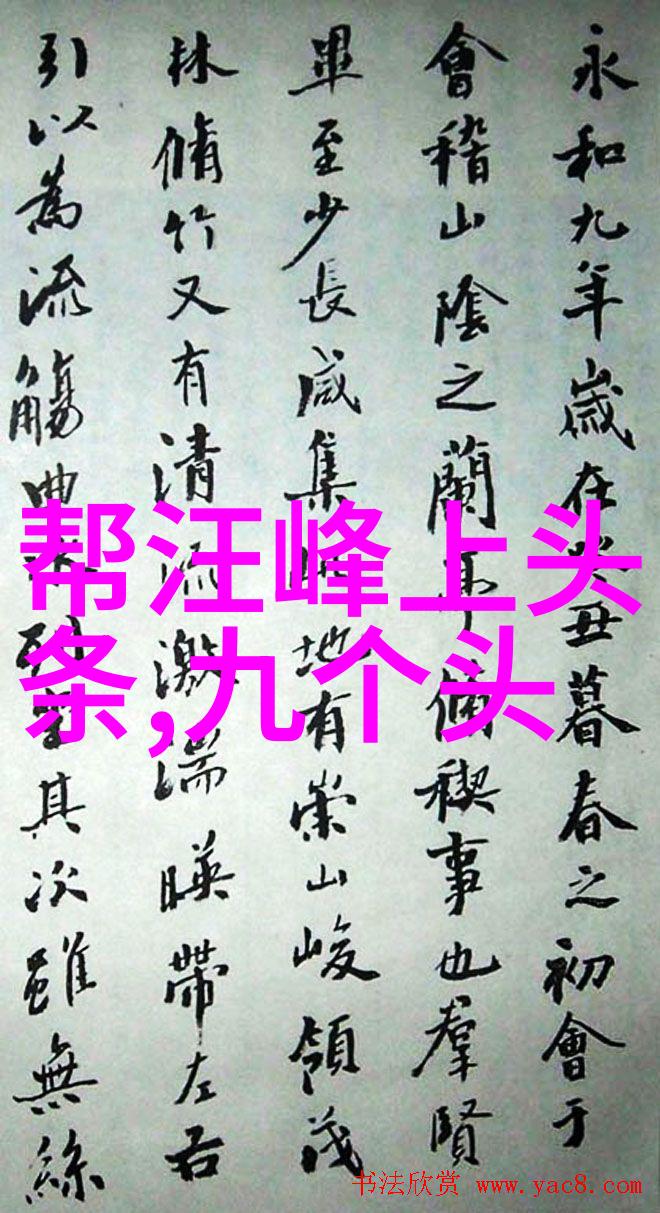 永和九年歲在癸丑暮春之初會于
會稽山陰之蘭亭脩稧事也羣賢
畢至少長咸集此地有崇山峻領茂
林脩竹又有清流激湍暎帶左右
引以為流觴曲水列坐其次雖無絲
帮汪峰上头
条,九个头
书法欣赏 www.yac8.com